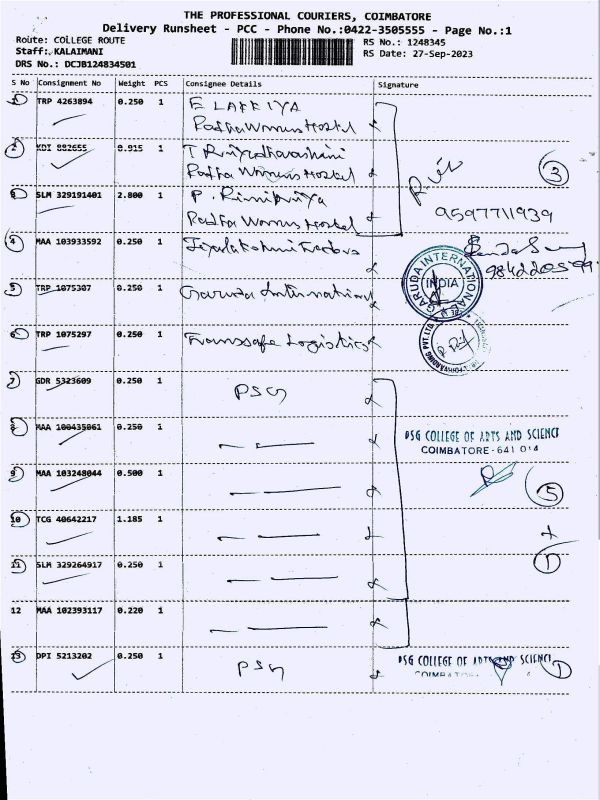 THE PROFESSIONAL COURIERS, COIMBATORE
Delivery Runsheet - PCC - Phone No.:0422-3505555 - Page No.:1
Route: COLLEGE ROUTE
RS No.: 1248345
Staff: KALAIMANI
RS Date: 27-Sep-2023
DRS No.: DCJB124834501
S No Consignment No Weight PCS Consignee Details Signature
1 TRP 4263894 0.250 1
Womens Hostel
2 KDI 882655 0.915 1
Womens Hostel
3 SLM 329191401 2.800 1 P.
Womens Hostel
3
9597711939
4 MAA 103933592 0.250 1
GARUDA INTERNATIONAL
INDIA
5 TRP 1075307 0.250 1 Garuda International
6 TRP 1075297 0.250 1 Transsafe Logistics
FORWARDING PVT. LTD
7 GDR 5323609 0.250 1 PSG
8 MAA 100435061 0.250 1
PSG COLLEGE OF ARTS AND SCIENCE
COIMBATORE - 641 014
9 MAA 103248044 0.500 1
5
10 TCG 40642217 1.185 1
+
1
11 SLM 329264917 0.250 1
12 MAA 102393117 0.220 1
13 DPI 5213202 0.250 1 PSG
PSG COLLEGE OF ARTS AND SCIENCE
1